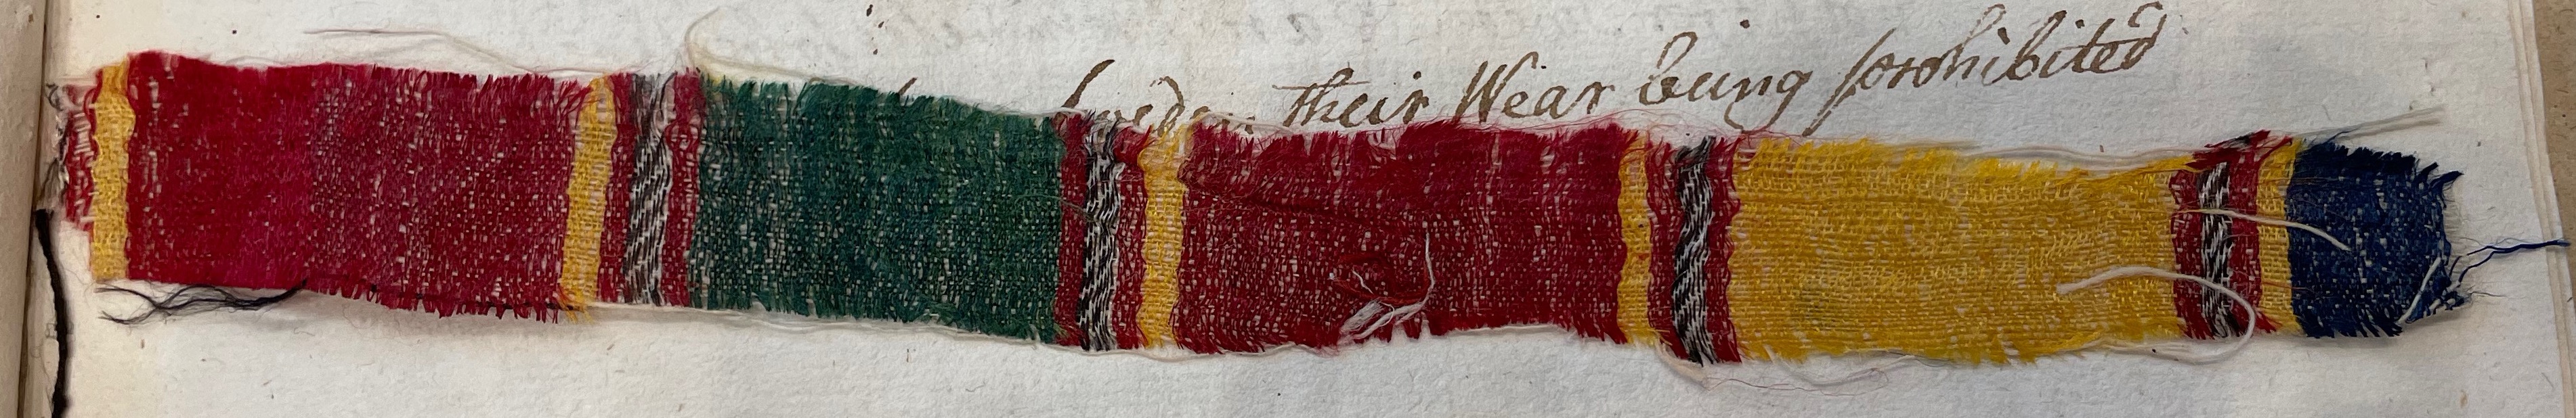 Sweden their Wear being prohibited